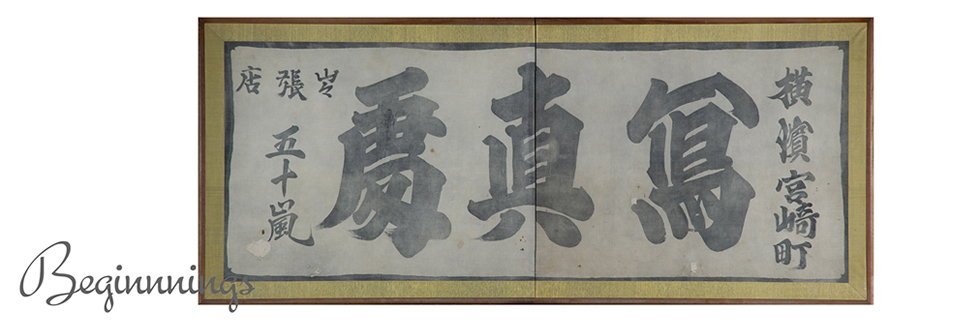 横濱宮崎町
冩真處
出張店
五十嵐
Beginnnings